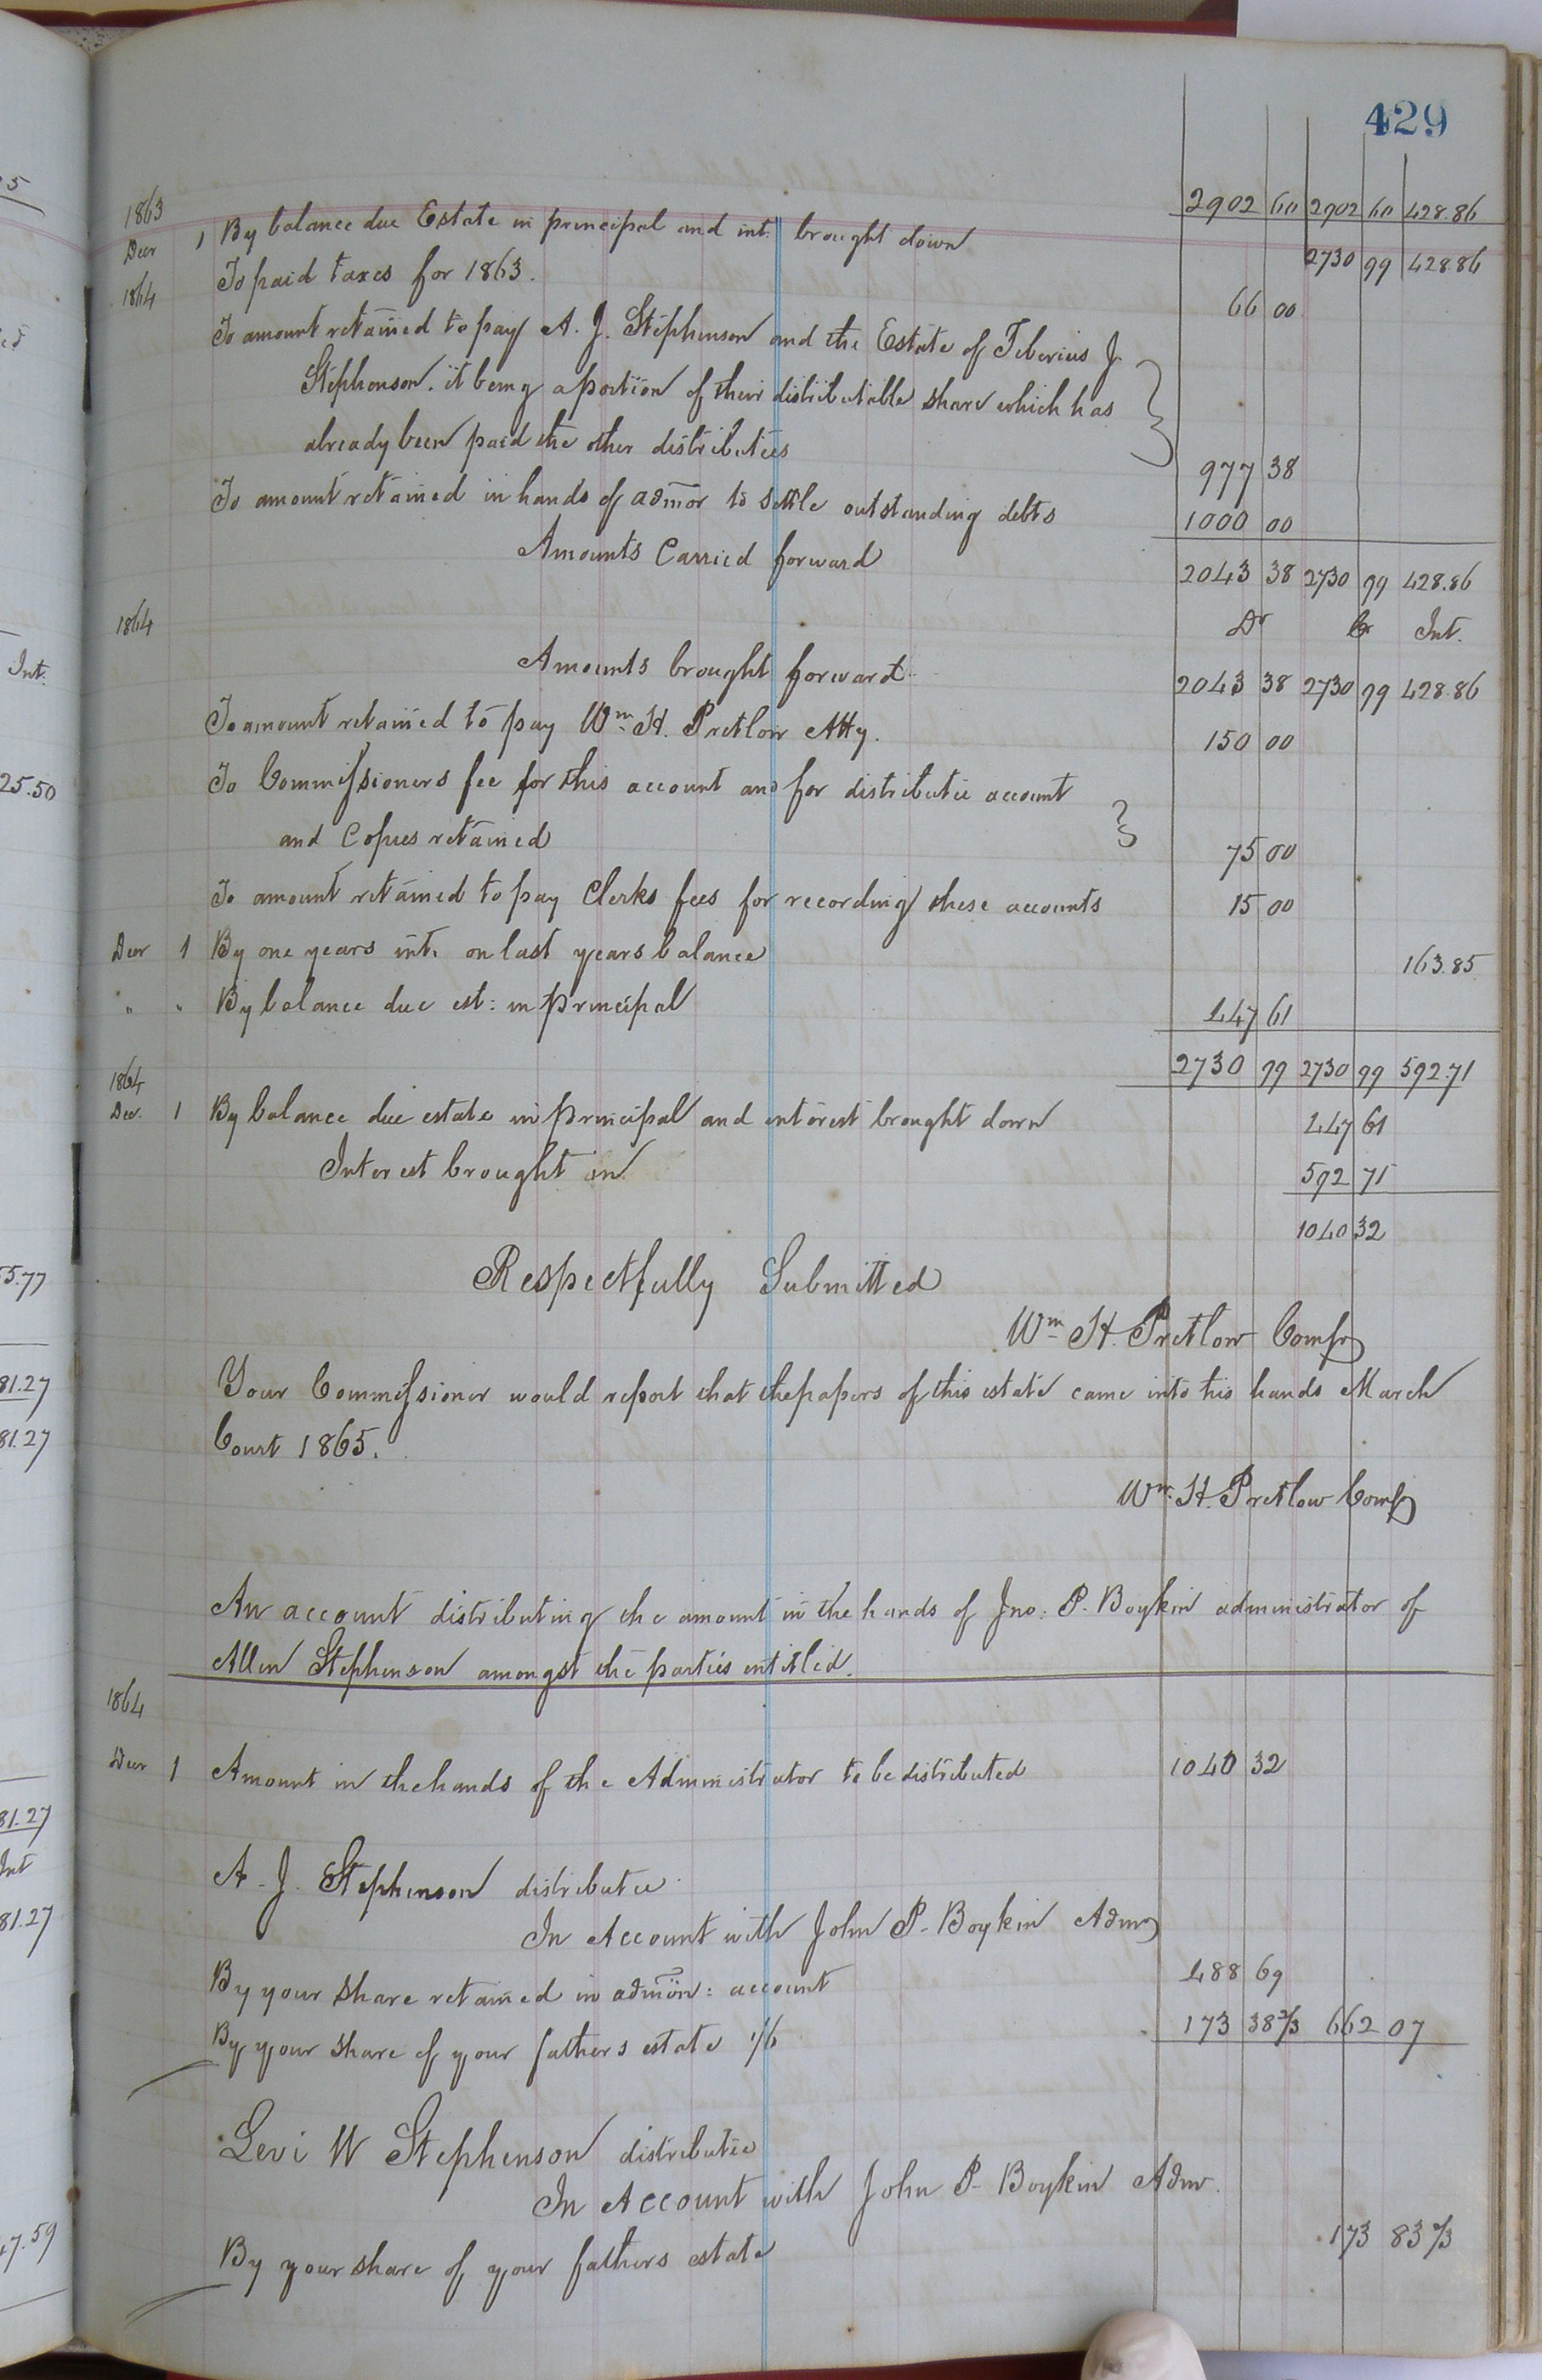 429
2902 60 2902 60 428.86
1863
Decr 1 By balance due Estate in principal and int. brought down 2730 99 428.86
1864 To paid taxes for 1863. 66 00
To amount retained to pay A. J. Stephenson and the Estate of Tiberius J.
Stephenson. it being a portion of their distributable share which has
already been paid the other distributees 977 38
To amount retained in hands of admor to settle outstanding debts 1000 00
Amounts Carried forward 2043 38 2730 99 428.86
1864 Dr Cr Int.
Amounts brought forward 2043 38 2730 99 428.86
To amount retained to pay Wm. H. Pretlow Atty. 150 00
To Commissioners fee for this account and for distributee account
and Copies retained 75 00
To amount retained to pay Clerks fees for recording these accounts 15 00
Decr 1 By one years int. on last years balance 163.85
" " By balance due est: in principal 447 61
2730 99 2730 99 592.71
1864
Dec. 1 By balance due estate in principal and interest brought down 447 61
Interest brought in 592 71
1040 32
Respectfully Submitted
Wm H. Pretlow Comr
Your Commissioner would report that the papers of this estate came into his hands March
Court 1865.
Wm. H. Pretlow Comr
An account distributing the amount in the hands of Jno: P. Boykin administrator of
Allen Stephenson amongst the parties entitled.
1864
Decr 1 Amount in the hands of the Administrator to be distributed 1040 32
A. J. Stephenson distributee
In Account with John P. Boykin Admr
By your share retained in admon: account 488 69
By your share of your fathers estate 1/6 173 38 2/3 662 07
Levi W Stephenson distributee
In Account with John P. Boykin Admr.
By your share of your fathers estate 173 83 2/3
Int.
25.50
55.77
81.27
81.27
81.27
Int
81.27
47.59